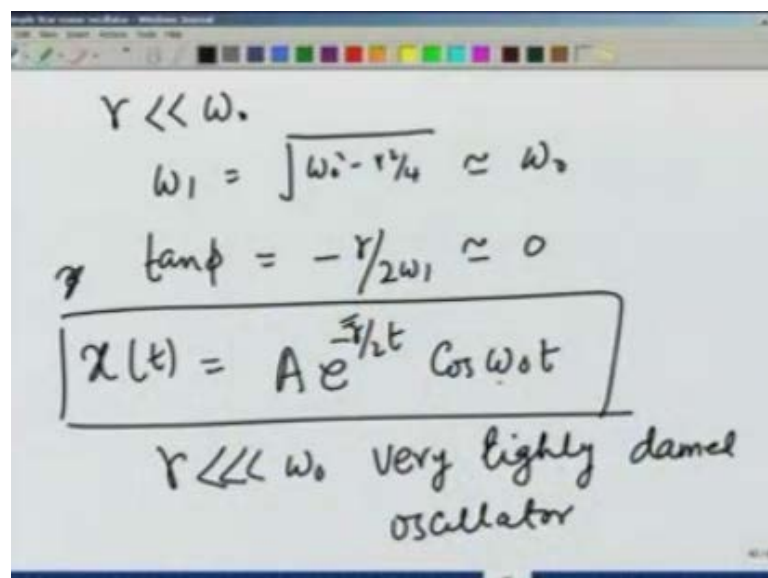 γ << ω₀
ω₁ = √(ω₀² - γ²/4) ≃ ω₀
tanφ = - γ/2ω₁ ≃ 0
x(t) = A e^(-γ/2 t) Cos ω₀t
γ <<< ω₀ very lighly damed
oscillator